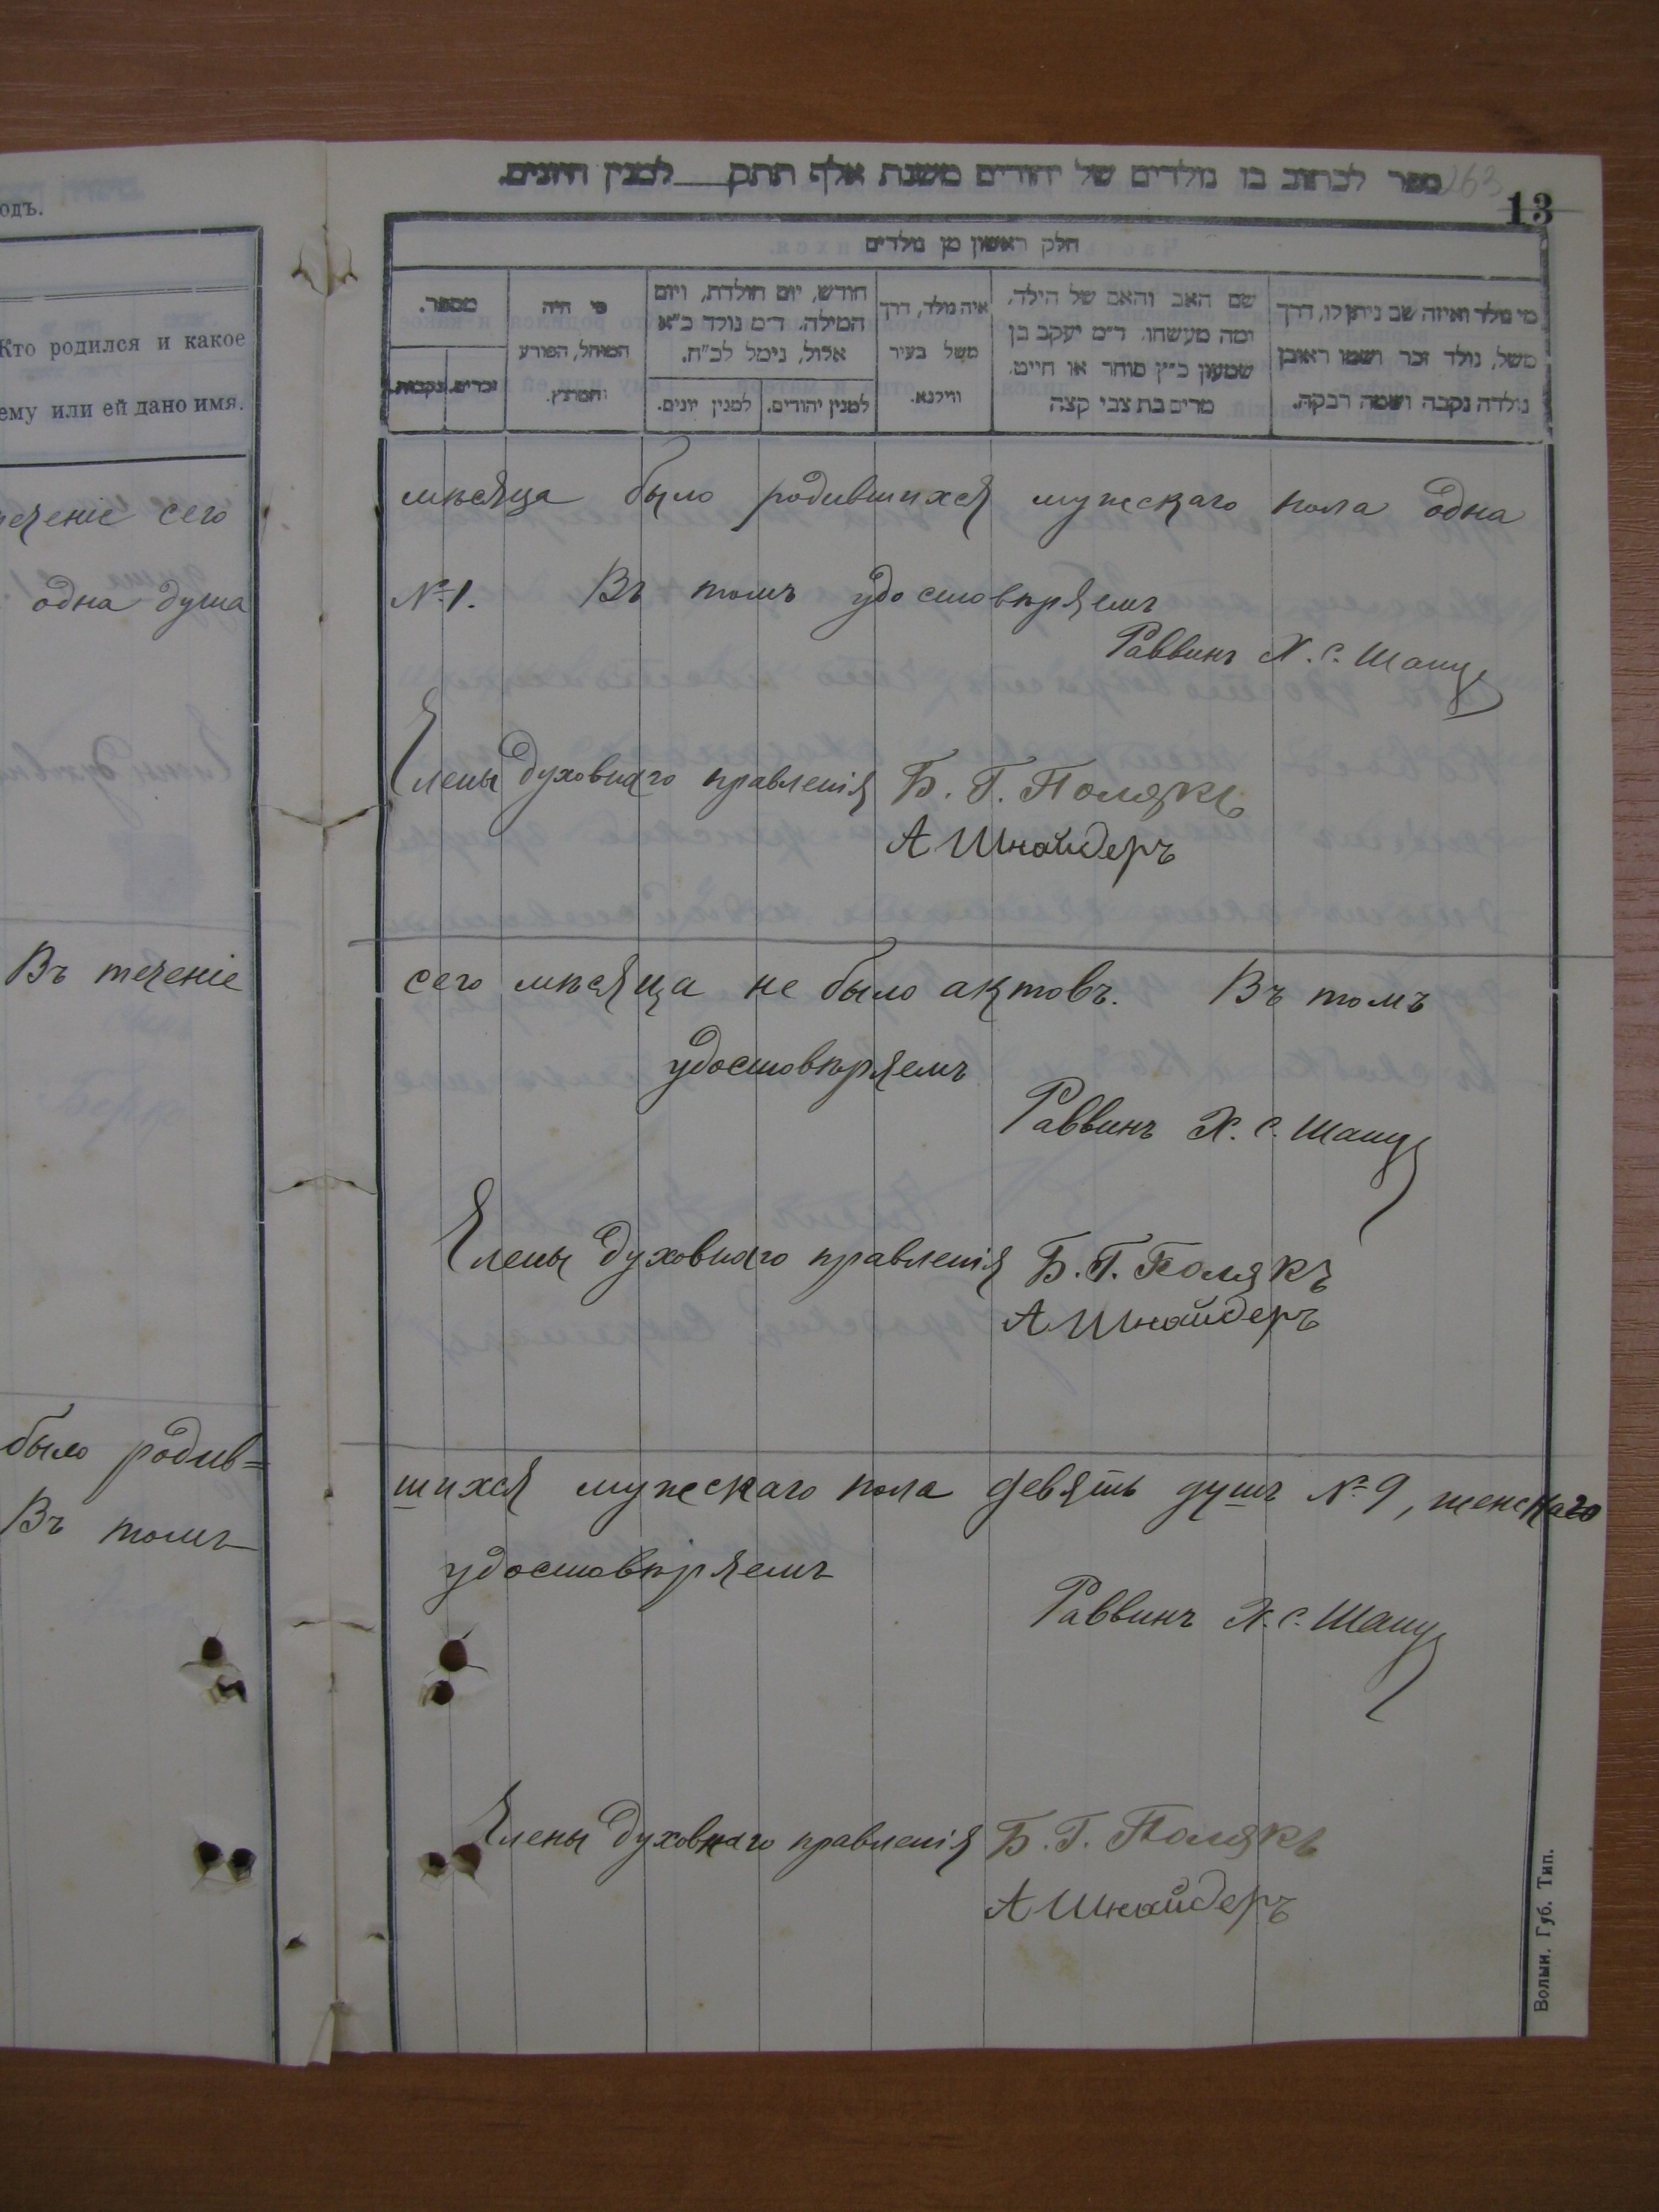 одъ.
Кто родился и какое
ему или ей дано имя.
теченіе сего
одна душа
Въ теченіе
было родив=
Въ томъ
263
13
ספר לכתוב בו נולדים של יהודים משנת אלף תתק למנין היונים.
חלק ראשון מן נולדים
מי נולד ואיזה שם ניתן לו, דרך
משל, נולד זכר ושמו ראובן
נולדה נקבה ושמה רבקה.
שם האב והאם של הילד,
ומה מעשהו. ד״מ יעקב בן
שמעון כ״ץ סוחר או חייט,
מרים בת צבי קצה
איה נולד, דרך
משל בעיר
ווילנא.
חודש, יום הולדת, ויום
המילה. ד״מ נולד כ״א
אלול, נימל לכ״ח.
למנין יהודים.
למנין יונים.
מי היה
המוהל, הפורע
והמוצץ.
מספר.
זכרים.
נקבות.
мѣсяца было родившихся мужскаго пола одна
№ 1. Въ томъ удостовѣряемъ
Раввинъ Х. С. Шапиро
Члены духовнаго правленія Б. Г. Полякъ
А Шнайдеръ
сего мѣсяца не было актовъ. Въ томъ
удостовѣряемъ
Раввинъ Х. С. Шапиро
Члены духовнаго правленія Б. Г. Полякъ
А Шнайдеръ
шихся мужскаго пола девять душъ № 9, женскаго
удостовѣряемъ
Раввинъ Х. С. Шапиро
Члены духовнаго правленія Б. Г. Полякъ
А Шнайдеръ
Волын. Губ. Тип.